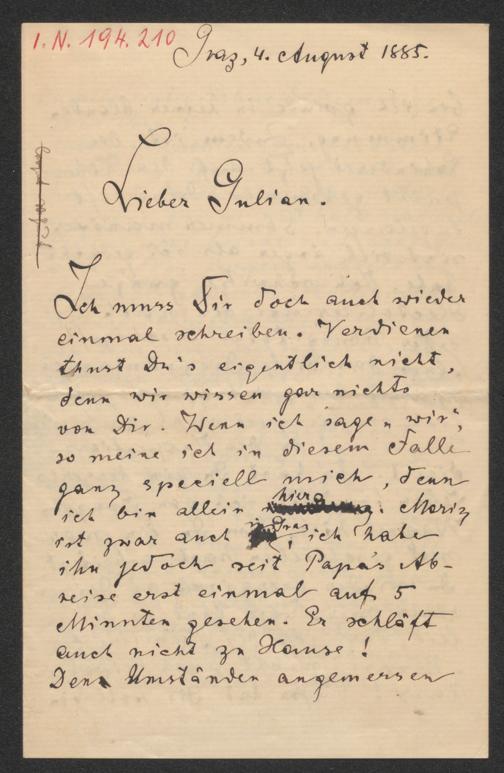 I. N. 194.210
Graz, 4. August 1885.
Lieber Julian.
Ich muss Dir doch auch wieder
einmal schreiben. Verdienen
thust Du's eigentlich nicht,
denn wir wissen gar nichts
von Dir. Wenn ich sage „wir",
so meine ich in diesem Falle
ganz speciell mich, denn
ich bin allein hier. Moriz
ist zwar auch in Graz, ich habe
ihn jedoch seit Papa's Ab-
reise erst einmal auf 5
Minuten gesehen. Er schläft
auch nicht zu Hause!
Den Umständen angemessen